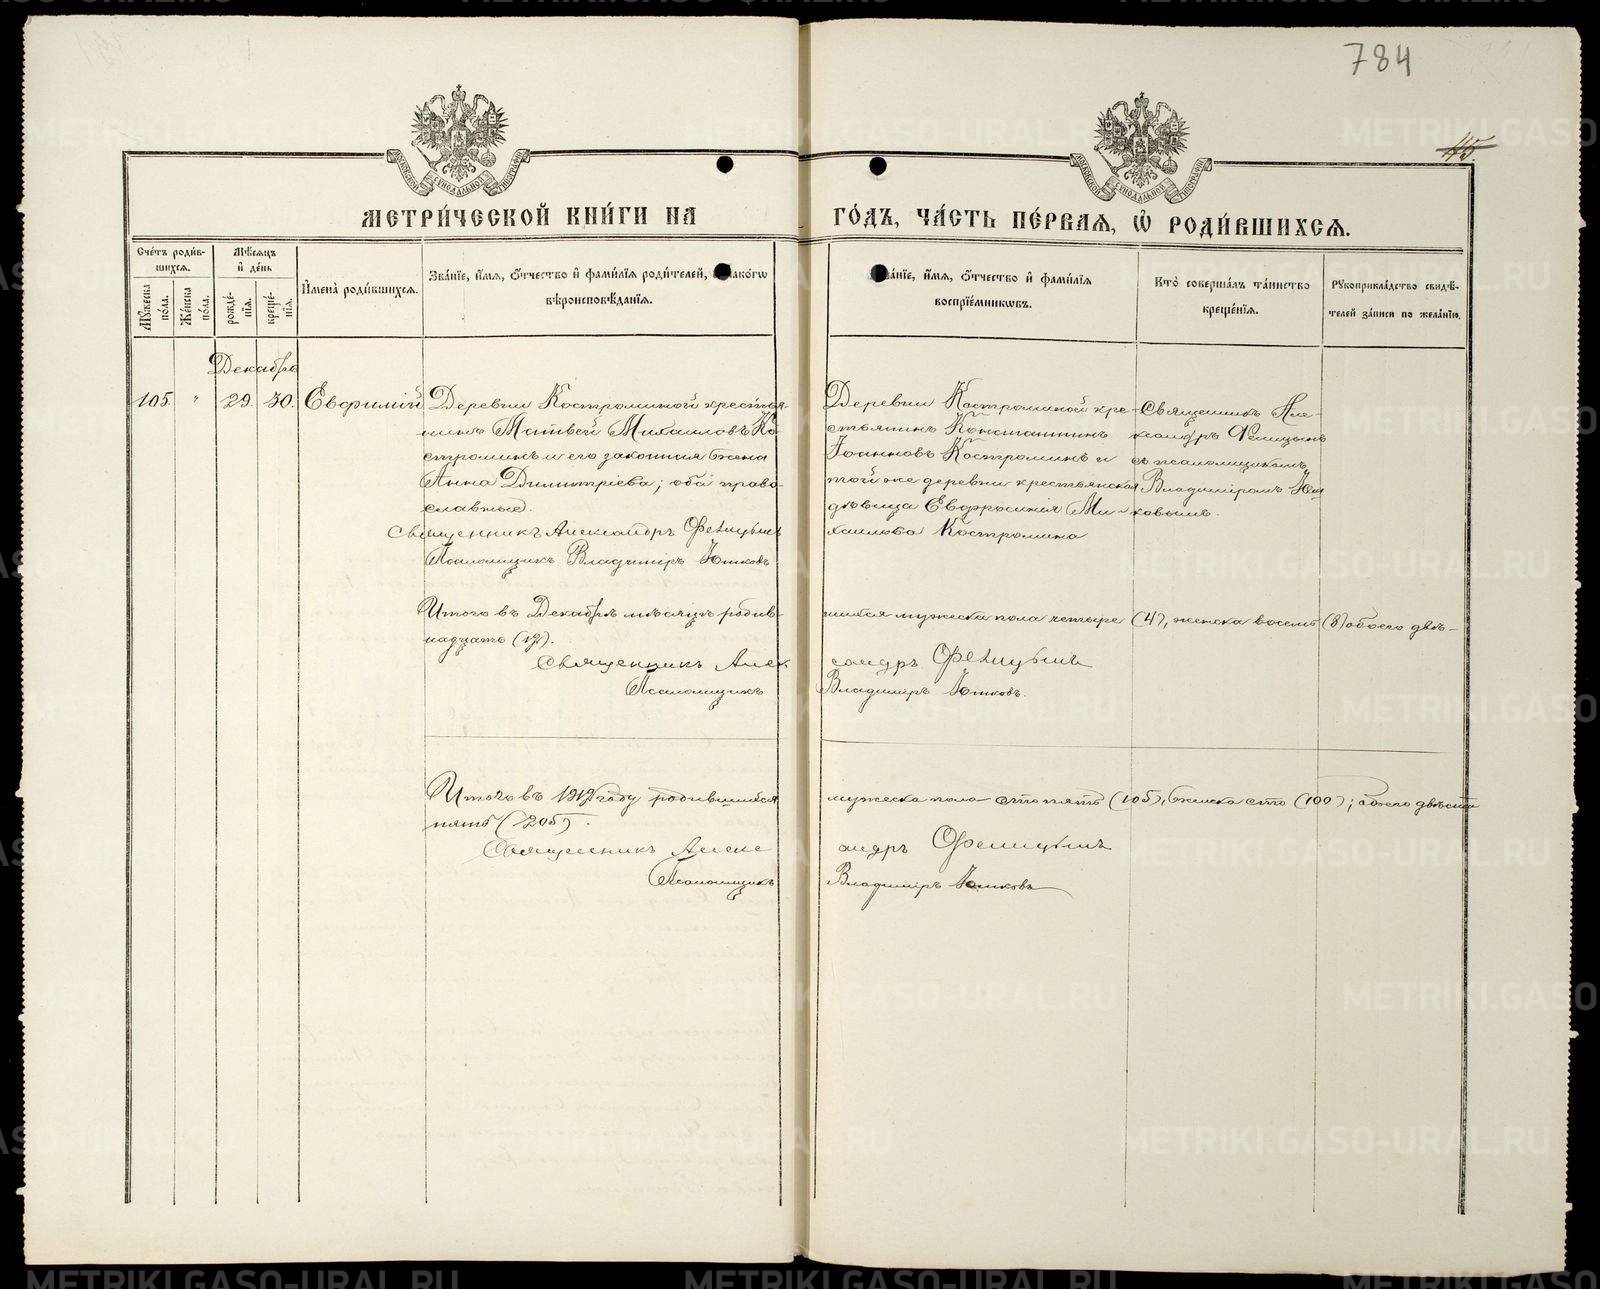 784
115.
МОСКОВСКОЙ СѴНОДАЛЬНОЙ ТИПОГРАФІИ
МОСКОВСКОЙ СѴНОДАЛЬНОЙ ТИПОГРАФІИ
МЕТРИ́ЧЕСКОЙ КНИ́ГИ НА ГО́ДЪ, ЧА́СТЬ ПЕ́РВАѦ, Ѡ҆ РОДИ́ВШИХСѦ.
Сче́тъ роди́в-
шихсѧ.
Мѣ́сѧцъ
и҆ де́нь
Мꙋ́жеска по́ла.
Же́нска по́ла.
рожде́-
нїѧ.
креще́-
нїѧ.
И҆мена̀ роди́вшихсѧ.
Зва́нїе, и҆́мѧ, ѻ҆́тчество и҆ фами́лїѧ роди́телей, како́гѡ
вѣроисповѣ́данїѧ.
Зва́нїе, и҆́мѧ, ѻ҆́тчество и҆ фами́лїѧ
воспрїе́мникѡвъ.
Кто̀ соверша́лъ та́инство
креще́нїѧ.
Рꙋкоприкла́дство свидѣ́-
телей за́писи по жела́нїю.
Декабрь
105. " 29. 30. Евфимій
Деревни Костроминой крестья-
нинъ Матвей Михаиловъ Ко-
строминъ и его законная жена
Анна Димитріева; оба право-
славные.
Священникъ Александръ Фелицынъ
Псаломщикъ Владиміръ Юшковъ
Деревни Костроминой кре-
стьянинъ Константинъ
Іоанновъ Костроминъ и
той же деревни крестьянская
дѣвица Евфросинія Ми-
хаилова Костромина
Священникъ Але-
ксандръ Фелицынъ
съ псаломщикомъ
Владиміромъ Юш
ковымъ.
Итого въ Декабрѣ мѣсяцѣ родив-шихся мужеска пола четыре (4), женска восемь (8) обоего двѣ-
надцать (12).
Священникъ Александръ Фелицынъ
Псаломщикъ Владиміръ Юшковъ.
Итого въ 1912 году родившихся мужеска пола сто пять (105), женска сто (100); обоего двѣсти
пять (205).
Священникъ Александръ Фелицынъ
Псаломщикъ Владиміръ Юшковъ
METRIKI.GASO-URAL.RU